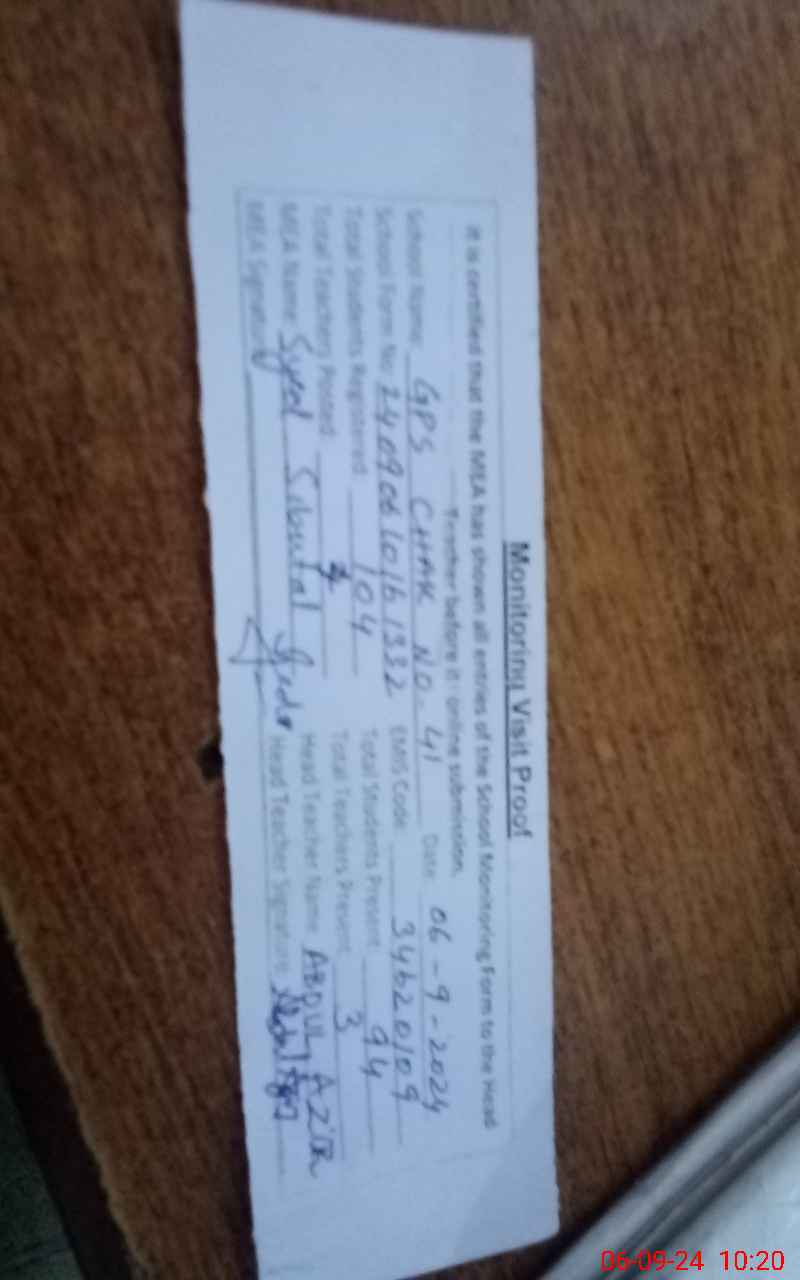 Monitoring Visit Proof
It is certified that the MEA has shown all entries of the School Monitoring Form to the Head
Teacher before it online submission.
School Name: GPS CHAK NO. 41 Date: 06-9-2024
School Form No: EMIS Code: 34620109
Total Students Registered: 104 Total Students Present: 94
Total Teachers Posted: Total Teachers Present: 3
MEA Name: Syed Head Teacher Name: ABDUL AZIZ
MEA Signature Head Teacher Signature:
06-09-24 10:20